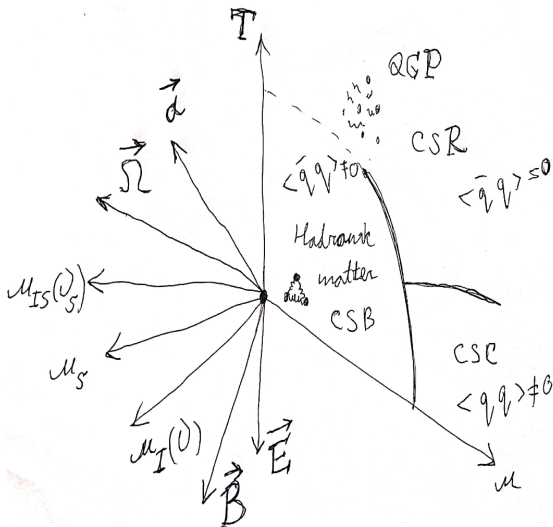 T
QGP
α⃗
CSR
Ω⃗
<q̄q>≠0
<q̄q>≃0
Hadronic
matter
CSB
μ_IS(ν_S)
μ_S
CSC
<qq>≠0
μ_I(ν)
E⃗
B⃗
μ